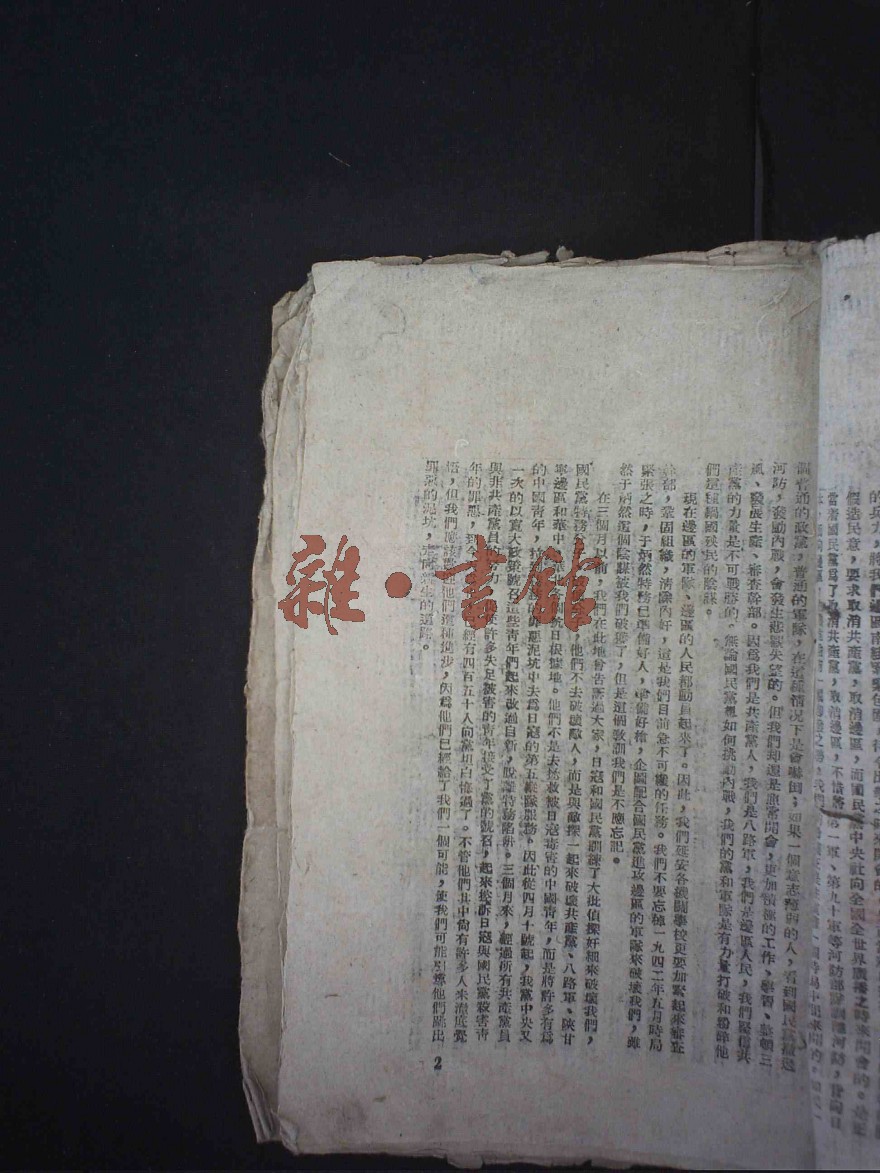 的兵力，將我們邊區南線
假造民意，要求取消共產黨，取消邊區，而國民黨中央社向全國全世界廣播之時來開會的。是正
當着國民黨爲了取消共產黨，取消邊區，不惜將第一軍、第九十軍等河防部隊
個普通的政黨，普通的軍隊，在這種情況下是會嚇倒；如果一個意志薄弱的人，看到國民黨撤退
河防，發動內戰，會發生悲觀失望的。但我們却還是照常開會，更加積極的工作、學習、整頓三
風、發展生產、審查幹部。因爲我們是共產黨人，我們是八路軍，我們是邊區人民，我們堅信共
產黨的力量是不可戰勝的。無論國民黨要如何挑動內戰，我們的黨和軍隊是有力量打破和粉碎他
們這種禍國殃民的陰謀。
現在邊區的軍隊、邊區的人民都動員起來了。因此，我們延安各機關學校更要加緊起來審查
幹部，鞏固組織，清除內奸，這是我們目前急不可緩的任務。我們不要忘掉一九四二年五月時局
緊張之時，于炳然特務已準備好人，準備好槍，企圖配合國民黨進攻邊區的軍隊來破壞我們，雖
然于炳然這個陰謀被我們破獲了，但是這個教訓我們是不應忘記。
在三個月以前，我們在此地曾告訴過大家，日寇和國民黨訓練了大批偵探奸細來破壞我們，
國民黨特務分 他們不去破壞敵人，而是與敵探一起來破壞共產黨、八路軍、陝甘
寧邊區和華中 抗日根據地。他們不是去拯救被日寇毒害的中國青年，而是將許多有爲
的中國青年， 罪惡泥坑中去爲日寇的第五縱隊服務。因此從四月十號起，我黨中央又
一次的以寬大政策號召這些青年們起來改過自新，脫離特務陷阱。三個月來，經過所有共產黨員
與非共產黨員的努力， 使許多失足被害的青年接受了黨的號召，起來控訴日寇與國民黨殺害青
年的罪惡，到今 經有四百五十人向黨坦白悔過了。不管他們其中尚有許多人未澈底覺
悟，但我們應該歡迎他們這種進步，因爲他們已經給了我們一個可能，使我們可能引導他們跳出
罪惡的泥坑，走向新生的道路。
2
雜·書館